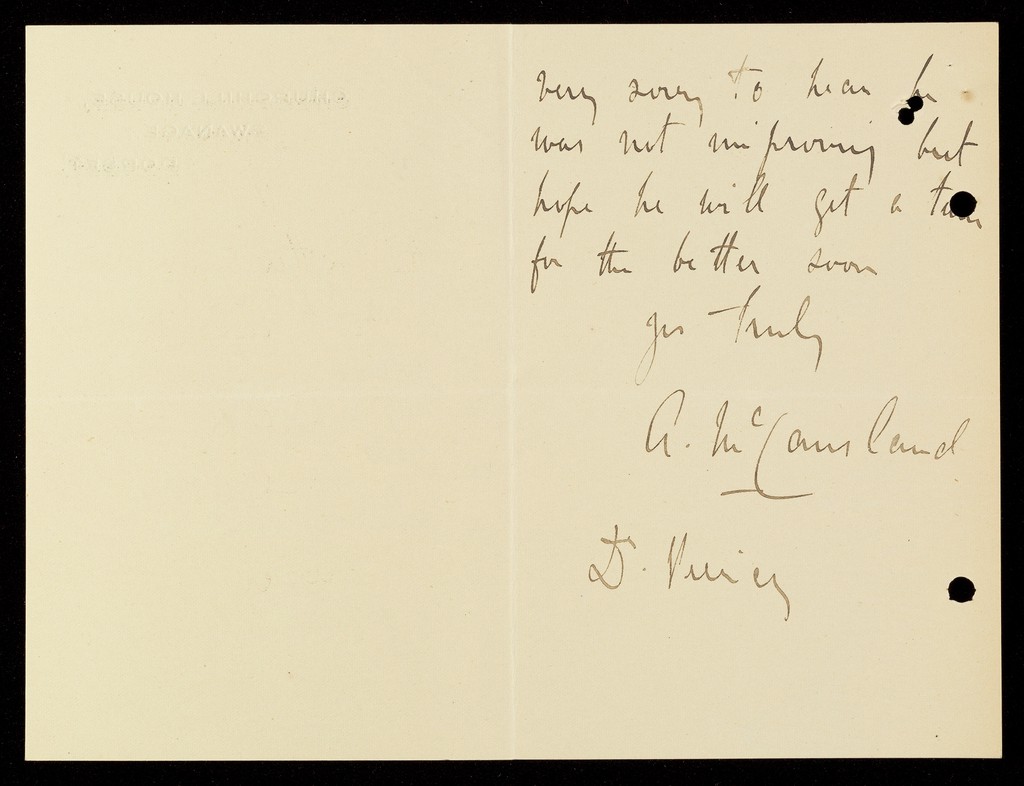 very sorry to hear he
was not improving but
hope he will get a turn
for the better soon
yrs truly
A. McCausland
Dr.